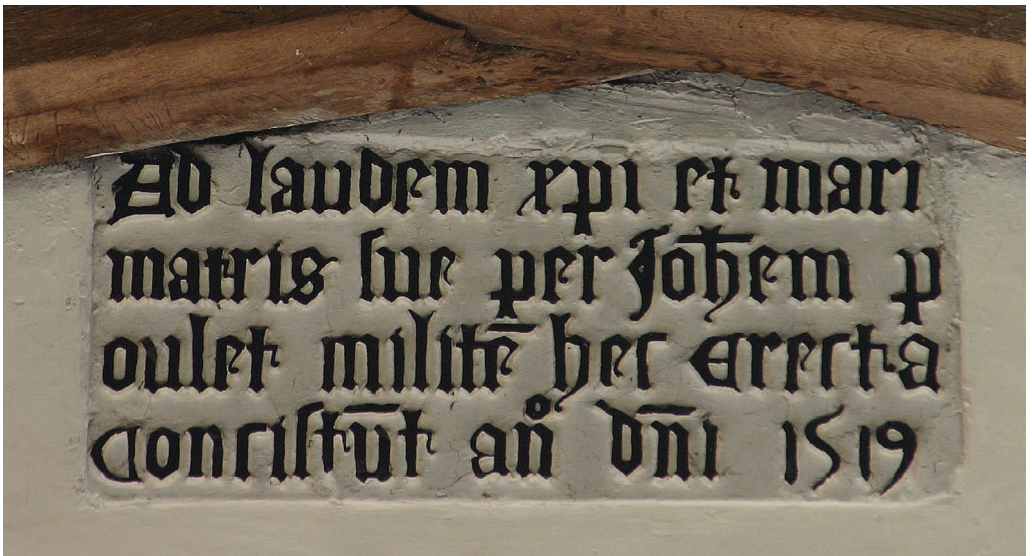 Ad laudem xpi et mari
matris sue per Joh̄em p
oulet militē hec Erecta
Concistūt añº dñi 1519